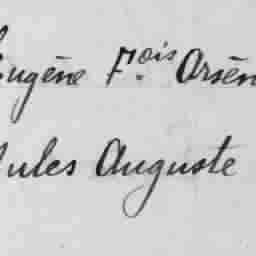 Eugène F.ois Arsèn
Jules Auguste